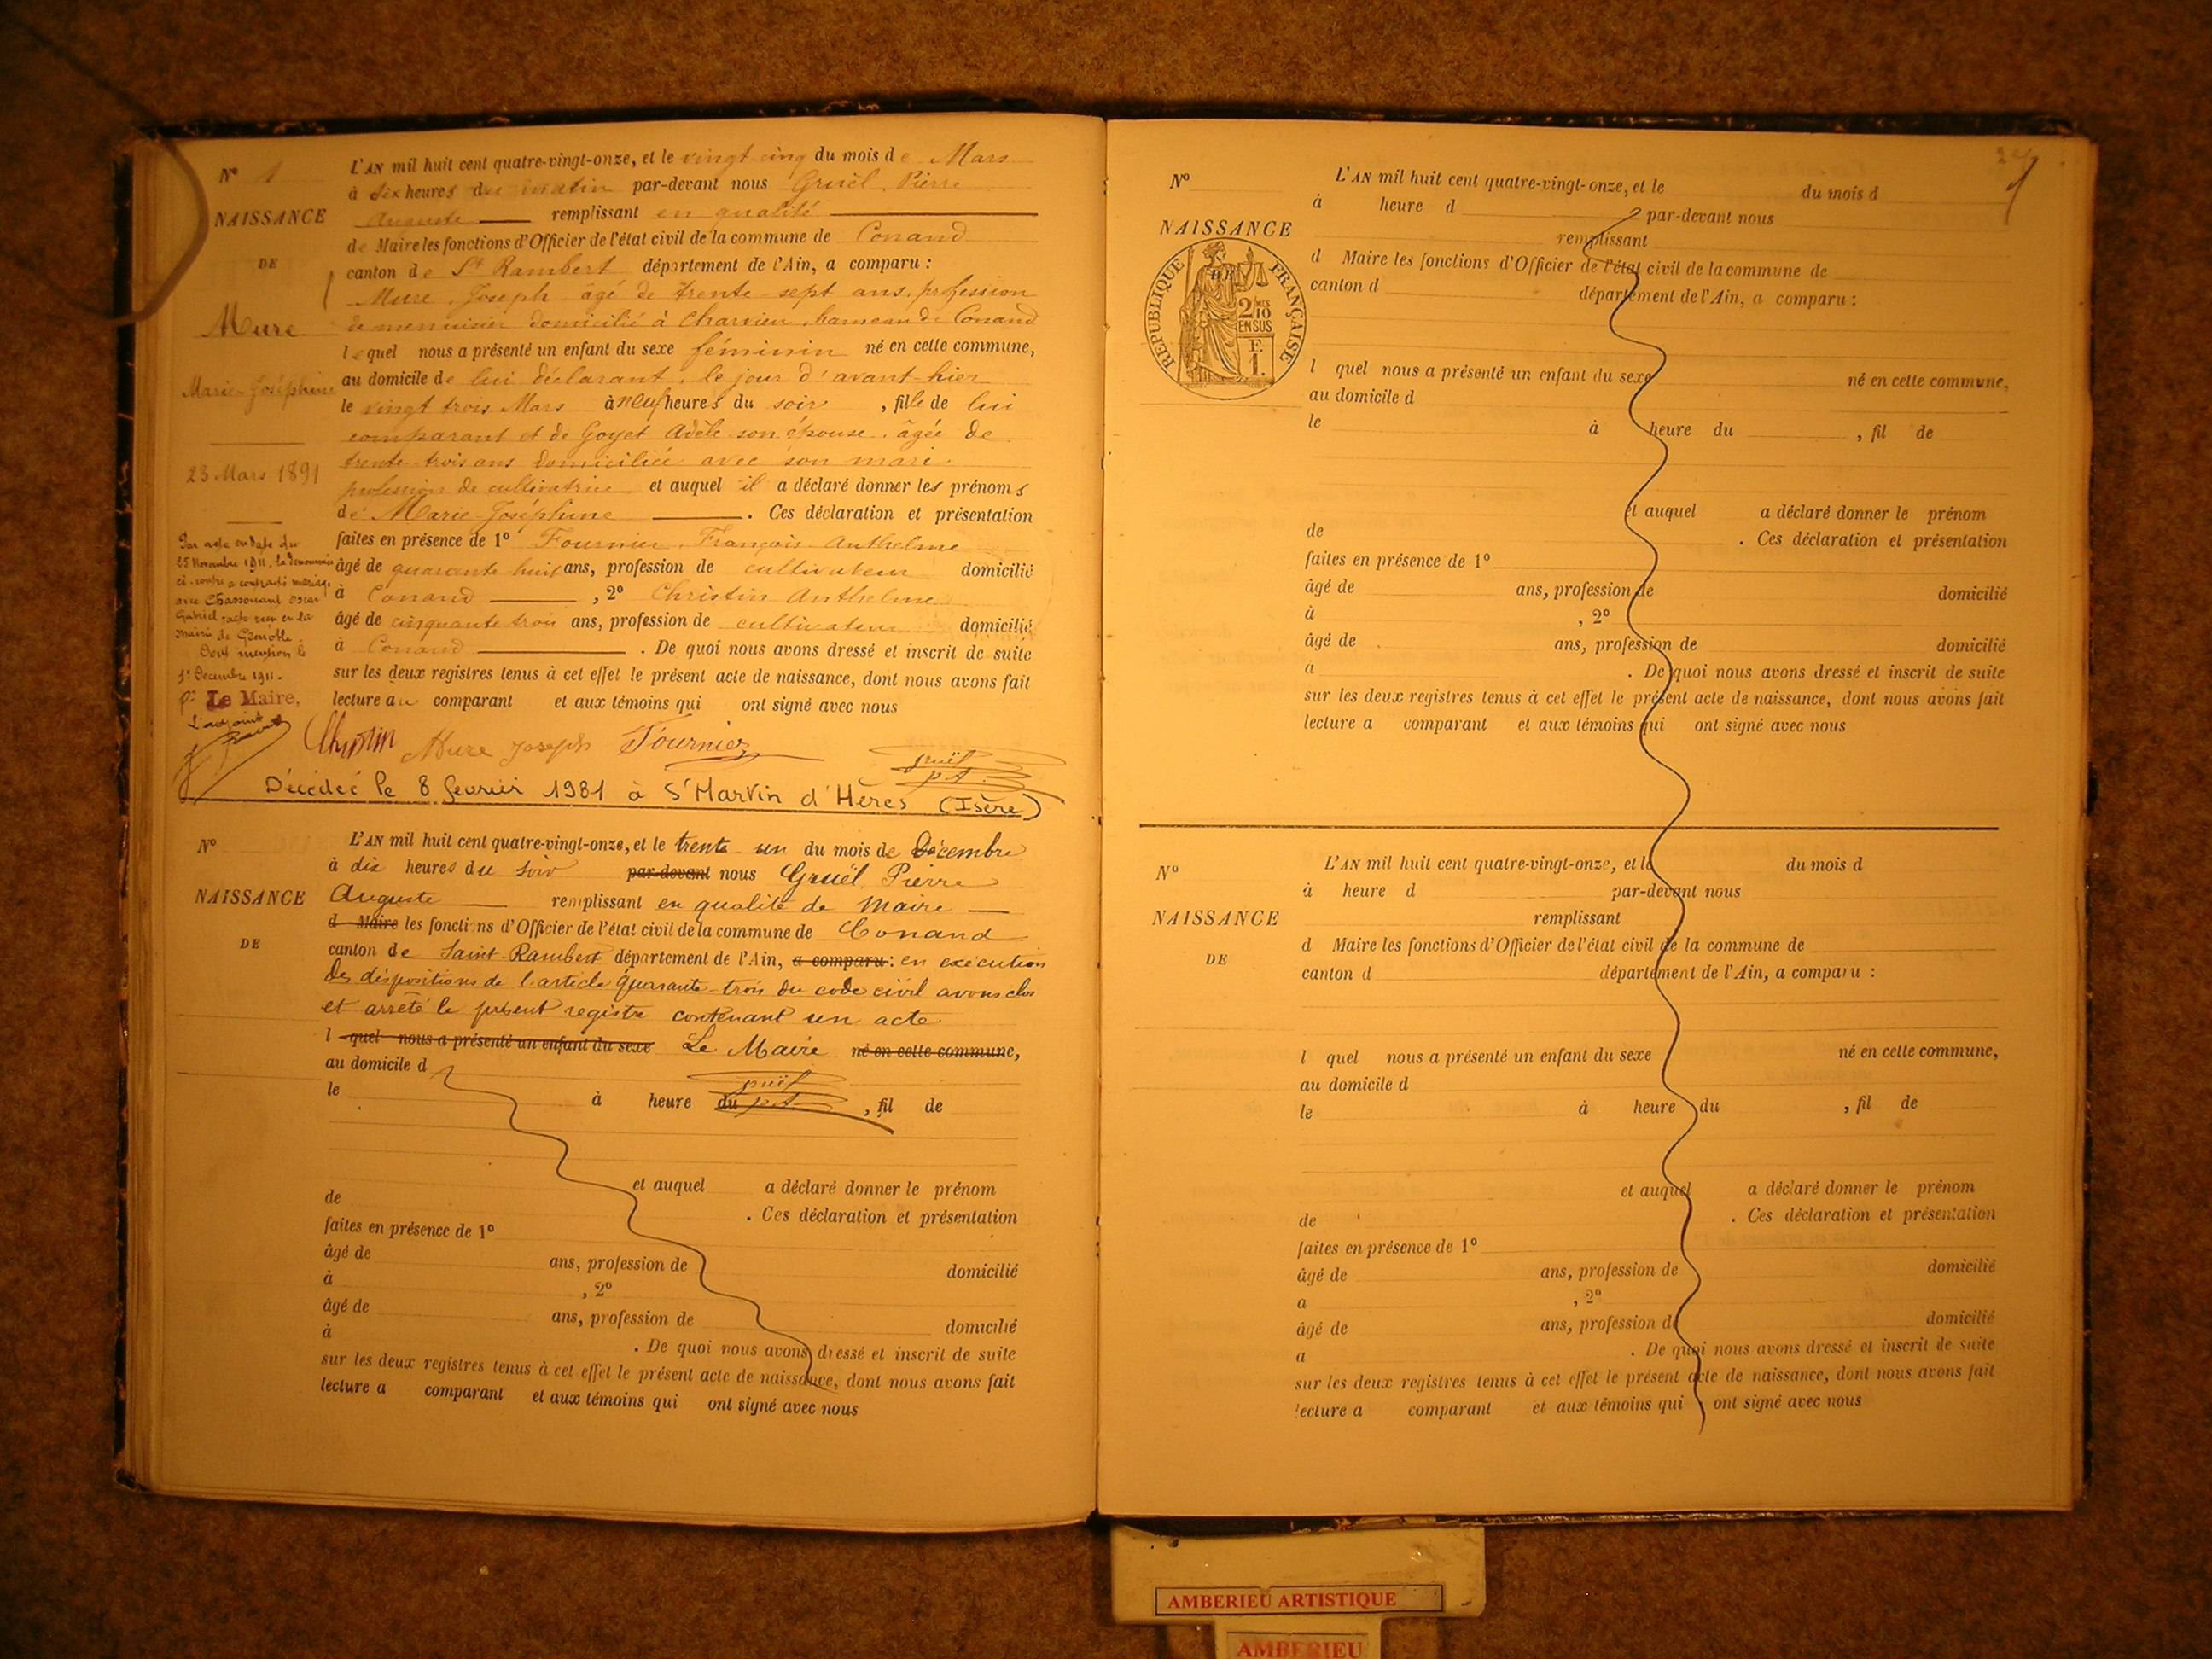 N° 1
NAISSANCE
DE
Mure
Marie-Joséphine
23 Mars 1891
Par acte en date du
25 Novembre 1911, la dénommée
ci-contre a contracté mariage
avec Chassouant Oscar
Gabriel, acte reçu en la
mairie de Grenoble
Dont mention le
1er Décembre 1911.
Pr Le Maire,
L'adjoint
L'AN mil huit cent quatre-vingt-onze, et le vingt cinq du mois de Mars
à dix heures du matin par-devant nous Gruël, Pierre
Auguste remplissant en qualité
de Maire les fonctions d'Officier de l'état civil de la commune de Conand
canton de St Rambert département de l'Ain, a comparu :
Mure, Joseph âgé de trente-sept ans, profession
de menuisier domicilié à Charvieu, hameau de Conand
lequel nous a présenté un enfant du sexe féminin né en cette commune,
au domicile de lui déclarant, le jour d'avant-hier
le vingt trois Mars à neuf heures du soir, fille de lui
comparant et de Goyet Adèle son épouse, âgée de
trente-trois ans domiciliée avec son mari.
profession de cultivatrice et auquel il a déclaré donner les prénoms
de Marie-Joséphine. Ces déclaration et présentation
faites en présence de 1° Fournier, François Anthelme
âgé de quarante huit ans, profession de cultivateur domicilié
à Conand, 2° Christin Anthelme
âgé de cinquante trois ans, profession de cultivateur domicilié
à Conand. De quoi nous avons dressé et inscrit de suite
sur les deux registres tenus à cet effet le présent acte de naissance, dont nous avons fait
lecture au comparant et aux témoins qui ont signé avec nous
Christin Mure Joseph Fournier Gruël
p.A.
Décédée le 8 février 1981 à St Martin d'Hères (Isère)
N°
NAISSANCE
DE
L'AN mil huit cent quatre-vingt-onze, et le trente un du mois de Décembre
à dix heures du soir par-devant nous Gruël Pierre
Auguste remplissant en qualité de Maire
d Maire les fonctions d'Officier de l'état civil de la commune de Conand
canton de Saint-Rambert département de l'Ain, a comparu : en exécution
des dispositions de l'article quarante-trois du code civil avons clos
et arrêté le présent registre contenant un acte
l quel nous a présenté un enfant du sexe Le Maire né en cette commune,
au domicile d Gruël
le à heure du p.A. , fil de
et auquel a déclaré donner le prénom
de . Ces déclaration et présentation
faites en présence de 1°
âgé de ans, profession de domicilié
à , 2°
âgé de ans, profession de domicilié
à . De quoi nous avons dressé et inscrit de suite
sur les deux registres tenus à cet effet le présent acte de naissance, dont nous avons fait
lecture a comparant et aux témoins qui ont signé avec nous
N°
NAISSANCE
DE
RÉPUBLIQUE FRANÇAISE
2/10 MES
EN SUS
F.
1.
L'AN mil huit cent quatre-vingt-onze, et le du mois d
à heure d par-devant nous
remplissant
d Maire les fonctions d'Officier de l'état civil de la commune de
canton d département de l'Ain, a comparu :
l quel nous a présenté un enfant du sexe né en cette commune,
au domicile d
le à heure du , fil de
et auquel a déclaré donner le prénom
de . Ces déclaration et présentation
faites en présence de 1°
âgé de ans, profession de domicilié
à , 2°
âgé de ans, profession de domicilié
a . De quoi nous avons dressé et inscrit de suite
sur les deux registres tenus à cet effet le présent acte de naissance, dont nous avons fait
lecture a comparant et aux témoins qui ont signé avec nous
N°
NAISSANCE
DE
L'AN mil huit cent quatre-vingt-onze, et le du mois d
à heure d par-devant nous
remplissant
d Maire les fonctions d'Officier de l'état civil de la commune de
canton d département de l'Ain, a comparu :
l quel nous a présenté un enfant du sexe né en cette commune,
au domicile d
le à heure du , fil de
et auquel a déclaré donner le prénom
de . Ces déclaration et présentation
faites en présence de 1°
âgé de ans, profession de domicilié
a , 2°
âgé de ans, profession de domicilié
a . De quoi nous avons dressé et inscrit de suite
sur les deux registres tenus à cet effet le présent acte de naissance, dont nous avons fait
lecture a comparant et aux témoins qui ont signé avec nous
AMBERIEU ARTISTIQUE
AMBERIEU